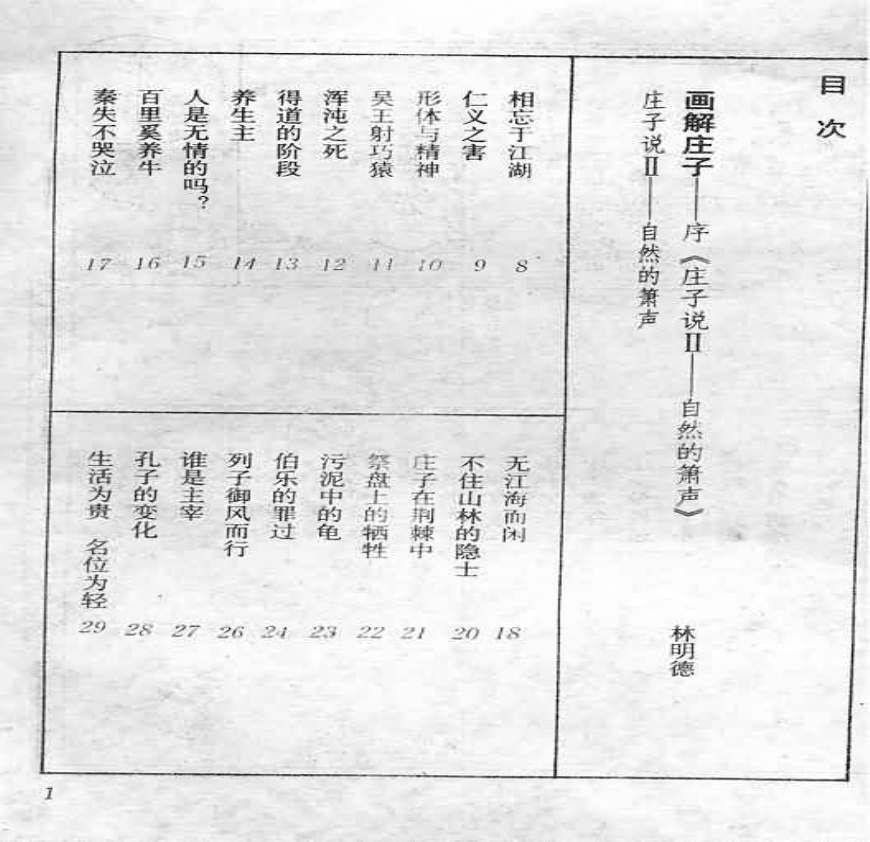 目次
画解庄子——序《庄子说Ⅱ——自然的箫声》 林明德
庄子说Ⅱ——自然的箫声
相忘于江湖 8
仁义之害 9
形体与精神 10
吴王射巧猿 11
浑沌之死 12
得道的阶段 13
养生主 14
人是无情的吗? 15
百里奚养牛 16
秦失不哭泣 17
无江海而闲 18
不住山林的隐士 20
庄子在荆棘中 21
祭盘上的牺牲 22
污泥中的龟 23
伯乐的罪过 24
列子御风而行 26
谁是主宰 27
孔子的变化 28
生活为贵 名位为轻 29
1